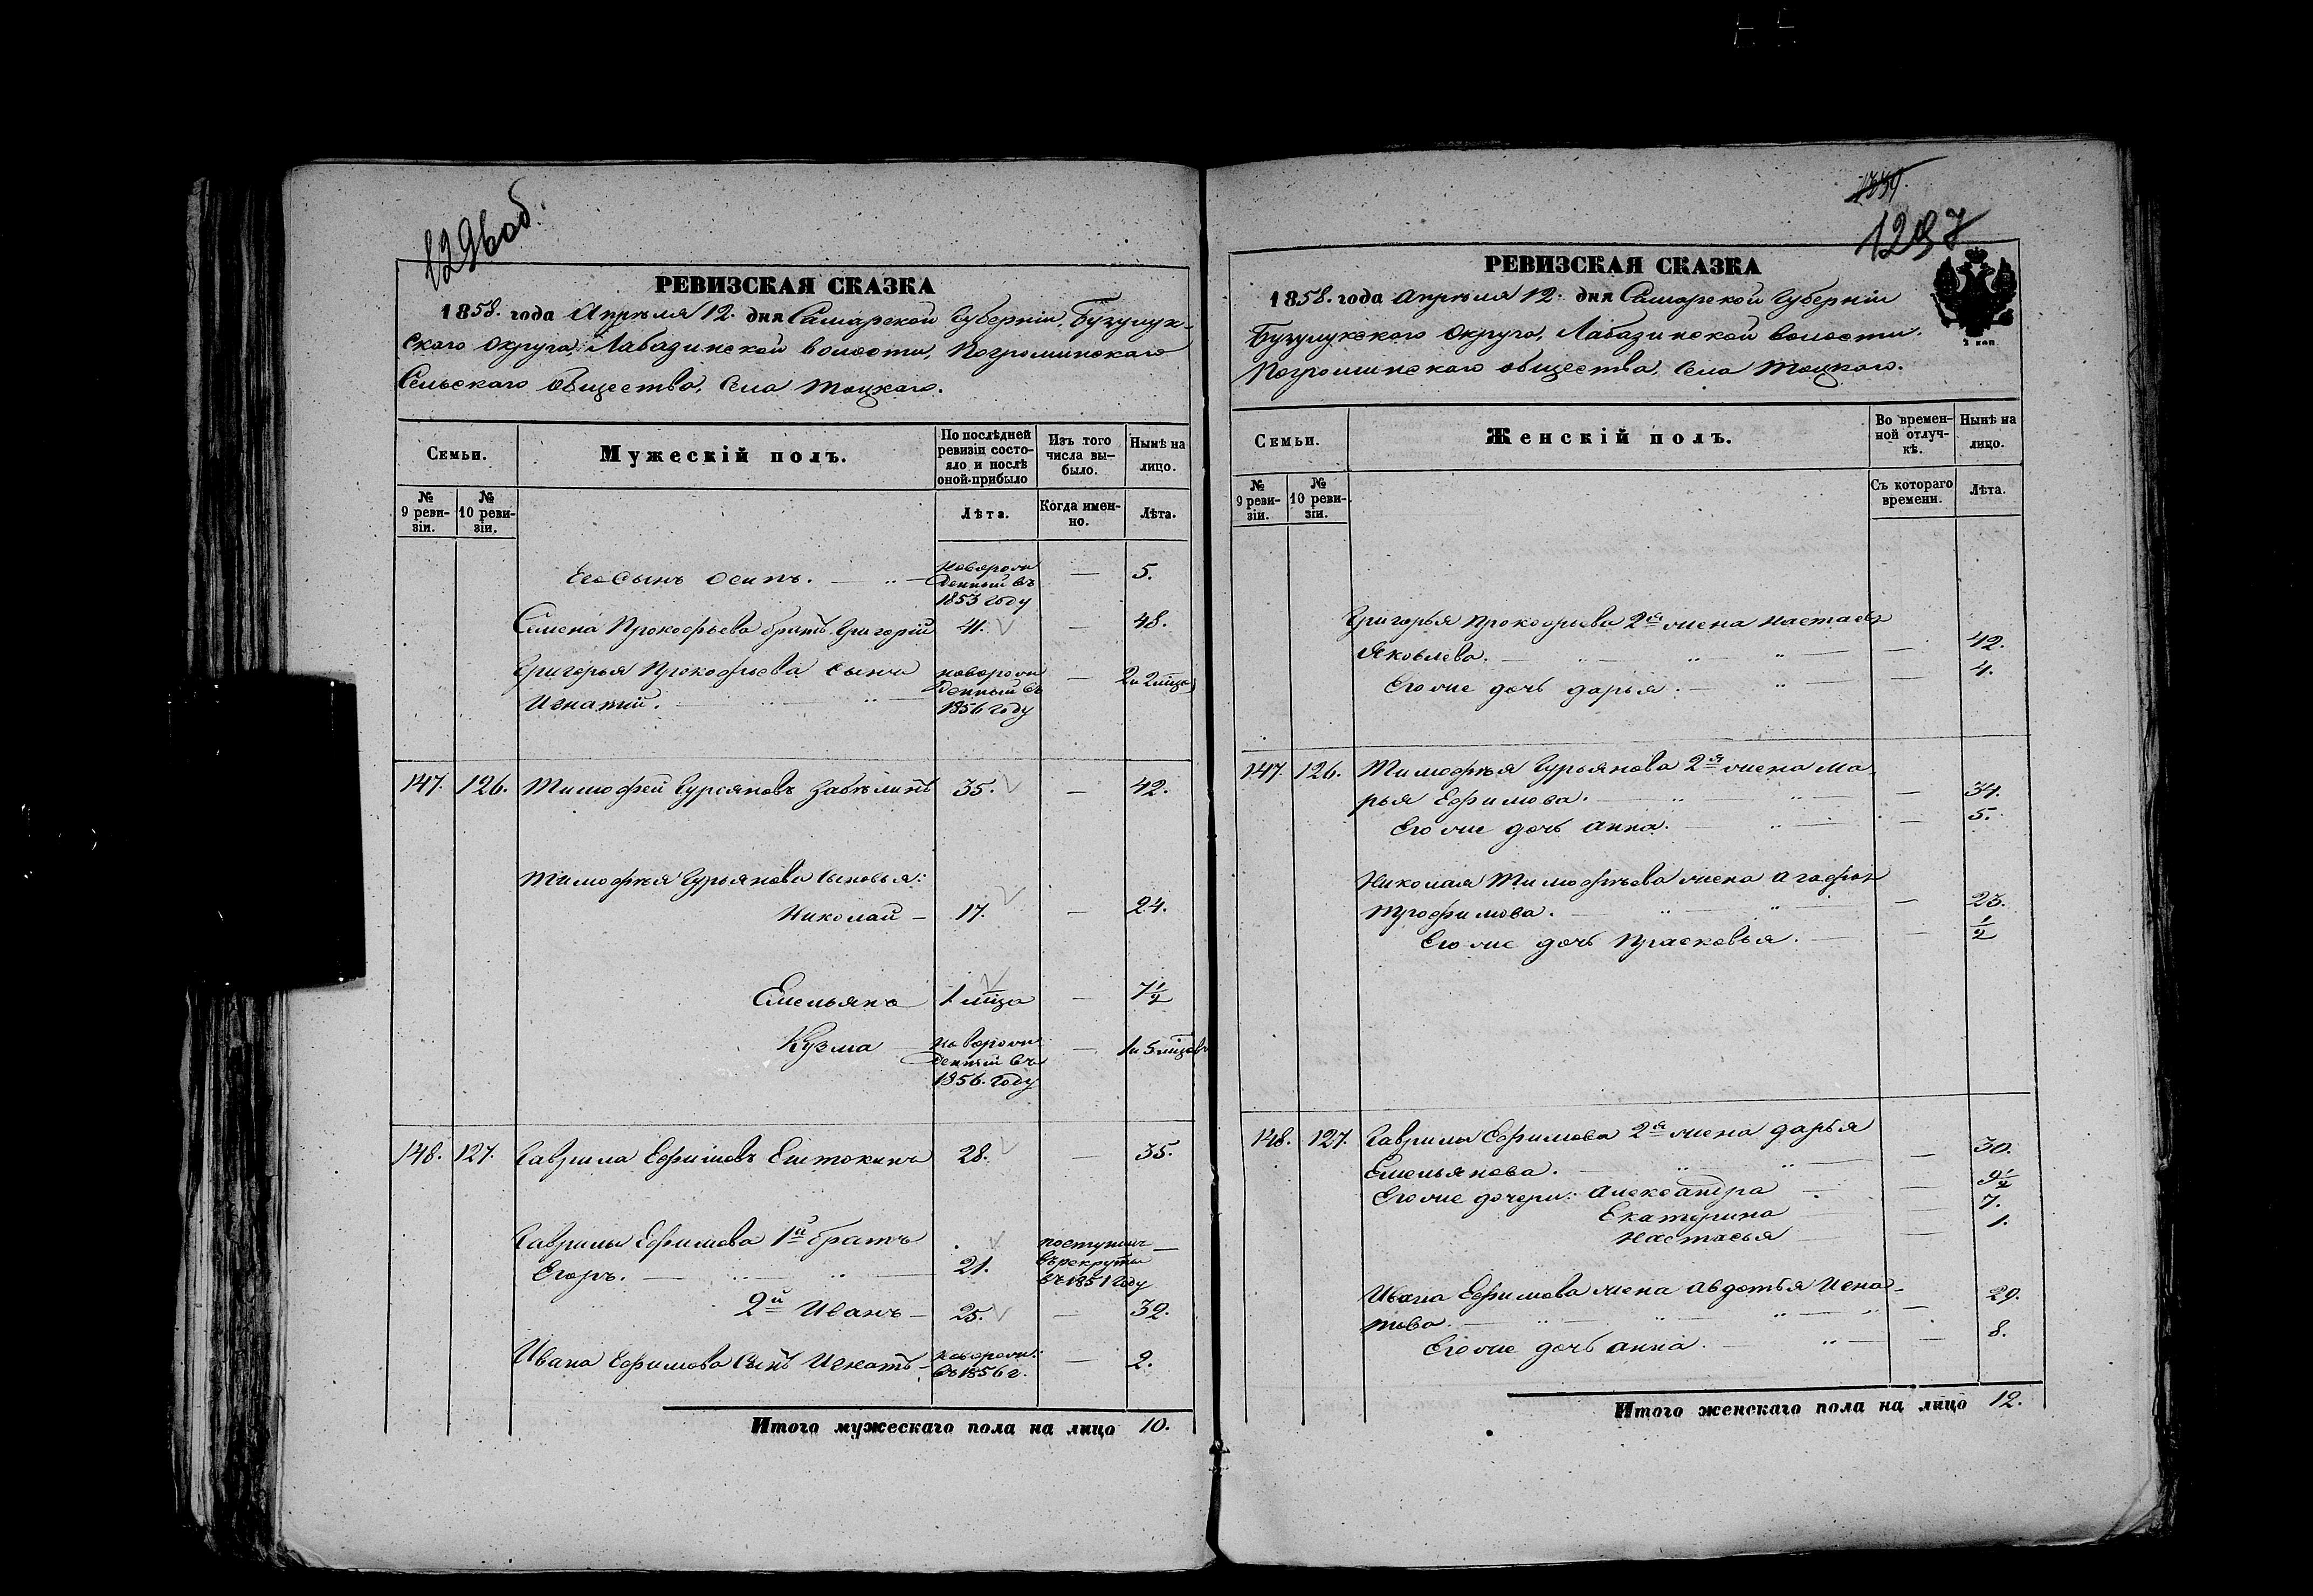 1296об.
РЕВИЗСКАЯ СКАЗКА
1858. года Апрѣля 12. дня Самарской Губерніи, Бузулук-
скаго Округа, Лабазинской волости, Погроминскаго
Сельскаго общества, села Тоцкаго.
Семьи.
Мужескій полъ.
По послѣдней ревизіи состо-
яло и послѣ оной прибыло
Изъ того числа вы-
было.
Нынѣ на лицо.
№ 9 реви-
зіи.
№ 10 реви-
зіи.
Лѣта.
Когда имен-
но.
Лѣта.
Его сынъ Осипъ. новорож
денный въ
1853 году — 5.
Семена Прокофьева братъ Григорій 41. — 48.
Григорья Прокофьева сынъ
Игнатій. новорож
денный въ
1856 году — 2 и 2 мца
147. 126. Тимофей Гурьяновъ Забѣлинъ 35. — 42.
Тимофея Гурьянова сыновья:
Николай — 17. — 24.
Емельянъ 1 мца — 7½
Кузма новорож
денный въ
1856. году — 1 и 5 мцовъ
148. 127. Гаврила Ефимовъ 28. — 35.
Гаврилы Ефимова 1й братъ
Егоръ. 21. поступилъ
въ рекруты
въ 1851 году —
2й Иванъ — 25. — 32.
Ивана Ефимова сынъ Игнатъ — новорож:
въ 1856 г. — 2.
Итого мужескаго пола на лицо 10.
1297
РЕВИЗСКАЯ СКАЗКА
1858. года Апрѣля 12. дня Самарской Губерніи
Бузулукскаго Округа, Лабазинской волости.
Погроминскаго общества, села Тоцкаго.
2 коп
Семьи.
Женскій полъ.
Во времен-
ной отлуч-
кѣ.
Нынѣ на лицо.
№ 9 реви-
зіи.
№ 10 реви-
зіи.
Съ котораго времени.
Лѣта.
Григорья Прокофьева 2я жена Настасья
Яковлева. — 42.
Его же дочь Дарья. — 4.
147. 126. Тимофея Гурьянова 2я жена Ма-
рья Ефимова. — 34.
Его же дочь Анна. — 5.
Николая Тимофѣева жена Агафья
Трофимова. — 23.
Его же дочь Прасковья. — ½
148. 127. Гаврилы Ефимова 2я жена Дарья
Емельянова. — 30.
Его же дочери: Александра — 9½
Екатерина — 7.
Настасья — 1.
Ивана Ефимова жена Авдотья Игна-
това. — 29.
Его же дочь Анна. — 8.
Итого женскаго пола на лицо 12.